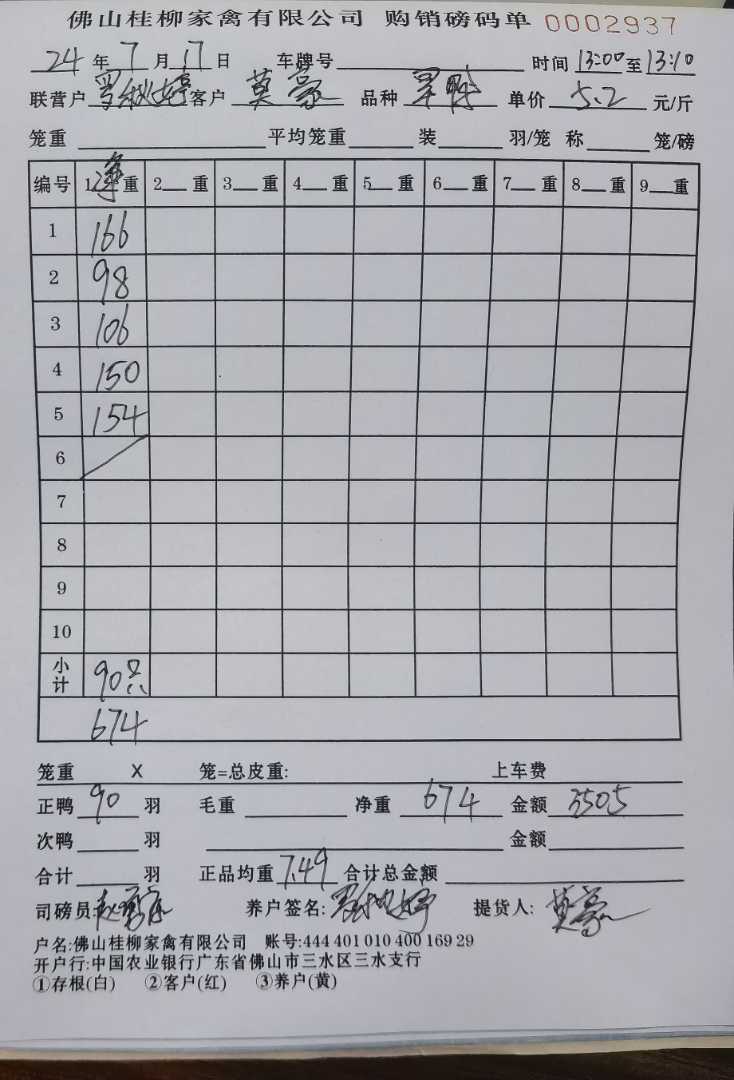 佛山桂柳家禽有限公司 购销磅码单 0002937
24 年 7 月 17 日 车牌号 时间 13:00 至 13:10
联营户 罗秋婷 客户 莫豪 品种 单价 5.2 元/斤
笼重 平均笼重 装 羽/笼 称 笼/磅
编号 1 净 重 2 重 3 重 4 重 5 重 6 重 7 重 8 重 9 重
1 166
2 98
3 106
4 150
5 154
6
7
8
9
10
小计 90只
674
笼重 X 笼=总皮重: 上车费
正鸭 90 羽 毛重 净重 674 金额 3505
次鸭 羽 金额
合计 羽 正品均重 7.49 合计总金额
司磅员: 养户签名: 罗秋婷 提货人: 莫豪
户名:佛山桂柳家禽有限公司 账号:444 401 010 400 169 29
开户行:中国农业银行广东省佛山市三水区三水支行
①存根(白) ②客户(红) ③养户(黄)